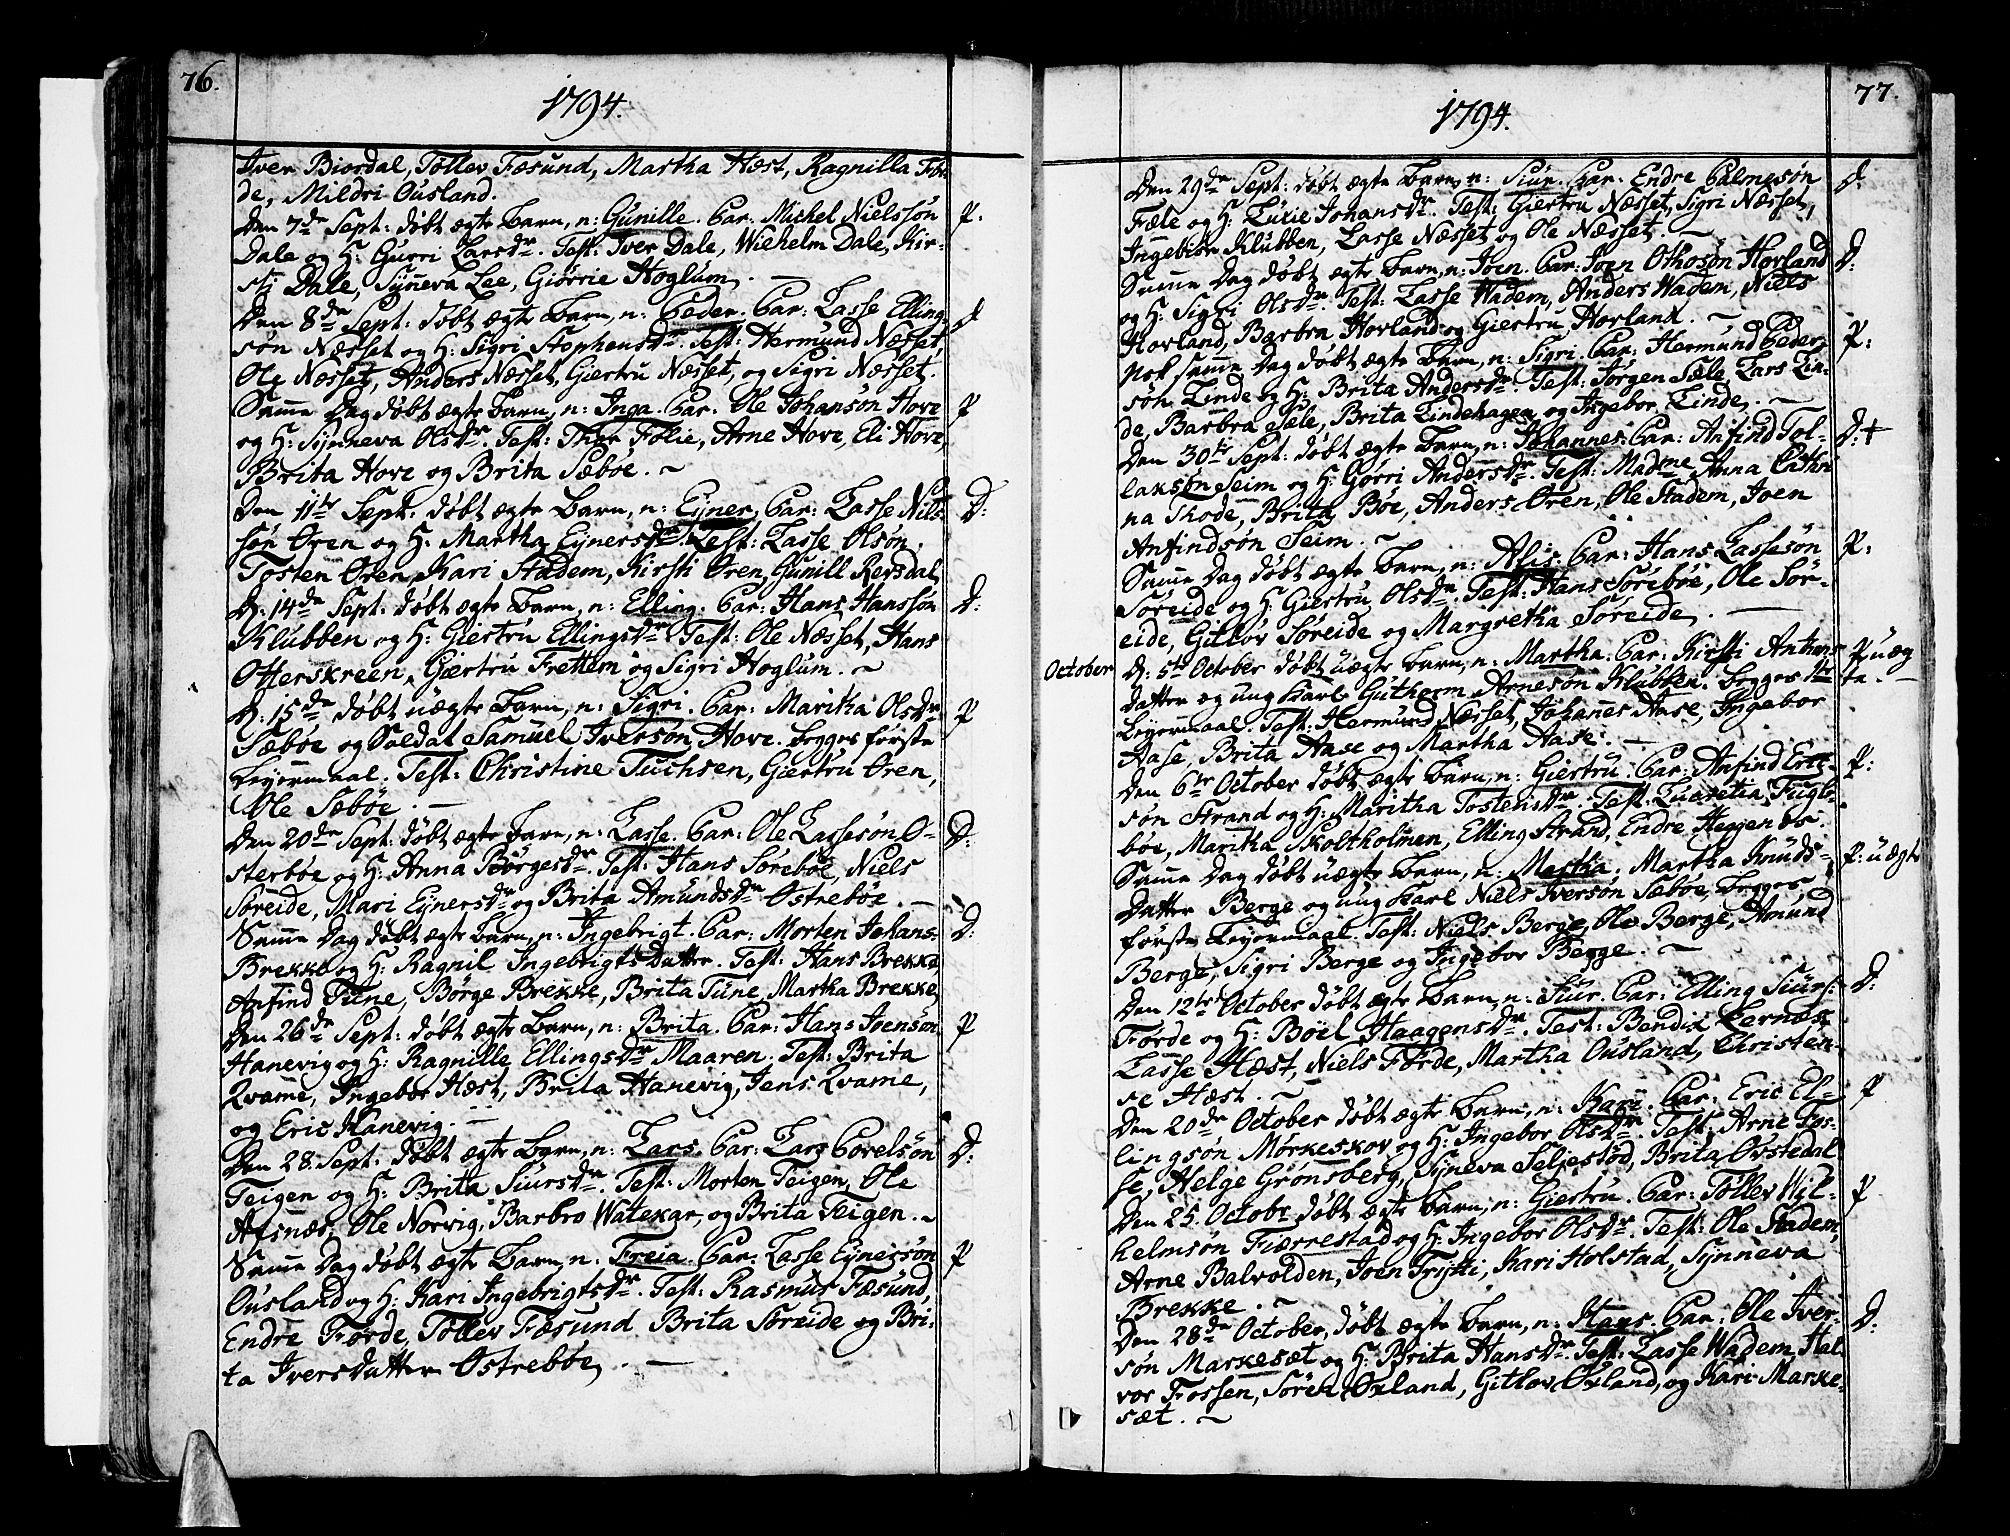 76.
1794.
Iver Biordal, Tøllev Fæsund, Martha Hæst, Ragnilla Før-
de, Mildri Ousland.
Den 7de Sept: døbt ægte Barn, n: Gunille. Par: Michel Nielssøn P.
Dale og H: Gurri Larsdr. Test: Iver Dale, Wilhelm Dale, Kir-
sti Dale, Synneva Lee, Giørrie Hoglum. —
Den 8de Sept: døbt ægte Barn, n: Peder. Par: Lasse Elling D
søn Næsset og H: Sigri Stephensdr. Test: Hermund Næsset,
Ole Næsset, Anders Næsset, Giertru Næset, og Sigri Næsset.
Samme Dag døbt ægte Barn, n: Inga. Par: Ole Johansøn Hove P
og H: Synneva Olsdr. Test: Ther Følie, Arne Hove, Eli Hove,
Brita Hove og Brita Sæbøe. ~
Den 11te Sept: døbt ægte Barn, n: Eyner. Par: Lasse Nils- D:
søn Øren og H: Martha Eynersdr. Test: Lasse Olsøn.
Tosten Øren, Kari Stadem, Kirsti Øren, Gunill Revsdal,
D: 14de Sept: døbt ægte Barn, n: Elling. Par: Hans Hanssøn D:
Klubben og H: Giertru Ellingsdr. Test: Ole Næsset, Hans
Otterskreen, Giertru Frettem og Sigri Hoglum. ~
D: 15de døbt uægte Barn, n: Sigri. Par: Maritha Olsdr. P
Sæbøe og Soldat Samuel Iversøn Hove. begges første
Leyermaal. Test: Christine Tuchsen, Giertru Øren,
Ole Sæbøe. —
Den 20de Sept: døbt ægte Barn, n: Lasse. Par: Ole Lassesøn O- D:
sterbøe og H: Anna Børgesdr. Test: Hans Sørebøe, Niels
Søreide, Mari Eynersdr og Brita Amundsdr Ostrebøe. —
Samme Dag døbt ægte Barn, n: Ingebrigt. Par: Morten Johans: D:
Brekke og H: Ragnil Ingebrigts Datter. Test: Hans Brekke
Anfind Tune, Børge Brekke, Brita Tune, Martha Brekke,
Den 26de Sept: døbt ægte Barn, n: Brita. Par: Hans Joensøn P
Hanevig og H: Ragnille Ellingsdr Maaren. Test: Brita
Qvamme, Ingebor Hæst, Brita Hanevig, Jens Qvame,
og Eric Hanevig. —
Den 28. Sept: døbt ægte Barn, n: Lars. Par: Lars Povelsøn D:
Teigen og H: Brita Siursdr. Test: Morten Teigen, Ole
Afsnæs, Ole Norvig, Barbro Watekar, og Brita Teigen. ~
Samme Dag døbt ægte Barn, n: Freia. Par: Lasse Eynersøn P
Ousland og H: Kari Ingebrigtsdr. Test: Rasmus Fæsund,
Endre Førde, Tøllev Fæsund. Brita Søreide og Bri-
ta Iversdatter Ostrebøe. —
77.
1794.
Den 29de Sept: døbt ægte Barn, n: Siur. Par: Endre Palmesøn D:
Fæle og H: Luxie Johansdr. Test: Giertru Næsset, Sigri Næsset,
Ingebior Klubben, Lasse Næsset og Ole Næsset. —
Samme Dag døbt ægte Barn, n: Joen. Par: Joen Othosøn Hovland D:
og H: Sigri Olsdr. Test: Lasse Wadem, Anders Wadem, Niels
Hovland, Barbra Hovland og Giertru Hovland. ~
Nok samme Dag døbt ægte Barn, n: Sigri. Par: Hermund Peder- P:
søn Linde og H: Brita Andersdr. Test: Jørgen Sæle, Lars Lin-
de, Barbra Sæle, Brita Lindehagen og Ingebor Linde. —
Den 30te Sept: døbt ægte Barn, n: Johannes. Par: Anfind Tol- D: +
laksøn Seim og H: Gørri Andersdr. Test: Madme Anna Cathri
na Skode, Brita Bøe, Anders Øren, Ole Stadem, Joen
Anfindsøn Seim. ~
Samme Dag døbt ægte Barn, n: Alis. Par: Hans Lassesøn P:
Søreide og H: Giertru Olsdr. Test: Hans Sørebøe, Ole Sør-
eide, Gitløv Søreide og Margretha Søreide. —
October D: 5te October døbt uægte Barn, n: Martha. Par: Kirsti Anthuns P uæg
datter og ung Karl Gutherm Arnesøn Klubben. begges 1te te. —
Leyermaal. Test. Hermund Næsset, Johannes Aase, Ingebor
Aase, Brita Aase og Martha Aase. —
Den 6te October døbt ægte Barn, n: Giertru. Par: Anfind Eric- P:
søn Strand og H: Maritha Tostensdr. Test: Lucretia Fugle-
bøe, Maritha Skoltholmen, Elling Strand, Endre Steggenæs.
Samme Dag døbt uægte Barn, n: Martha. Martha Knuds- P: uægte
Datter Berge og ung Karl Niels Iversøn Sæbøe, begges
første Leyermaal. Test: Niels Berge, Ole Berge, Amund
Berge, Sigri Berge og Ingebor Berge. ~
Den 12te October døbt ægte Barn, n: Siur. Par: Elling Siurs: D:
Førde og H: Boel Haagensdr. Test: Bendix Lernæs
Lasse Hæst, Niels Førde, Martha Ousland, Christen-
se Hæst. ~
Den 20de October døbt ægte Barn, n: Kari. Par: Eric El- P
lingsøn Mørkeskov og H: Ingebor Olsdr. Test: Arne Fos-
se, Helge Grønsberg, Syneva Seljestød, Brita Ovstedal
Den 25. Octobr døbt ægte Barn, n: Giertru. Par: Tøllev Wil- P
helmsøn Fiærrestad og H: Ingebor Olsdr. Test: Ole Stadem,
Arne Balvolden, Joen Trytti, Kari Holstad, Synneva
Brekke. ~
Den 28de October, døbt ægte Barn, n: Hans. Par: Ole Iver- D:
søn Markesæt og H: Brita Hansdr. Test: Lasse Wadem, Hal-
vor Fossen, Søren Oxland, Gitløv Oxland, og Kari Marke-
sæt. ~